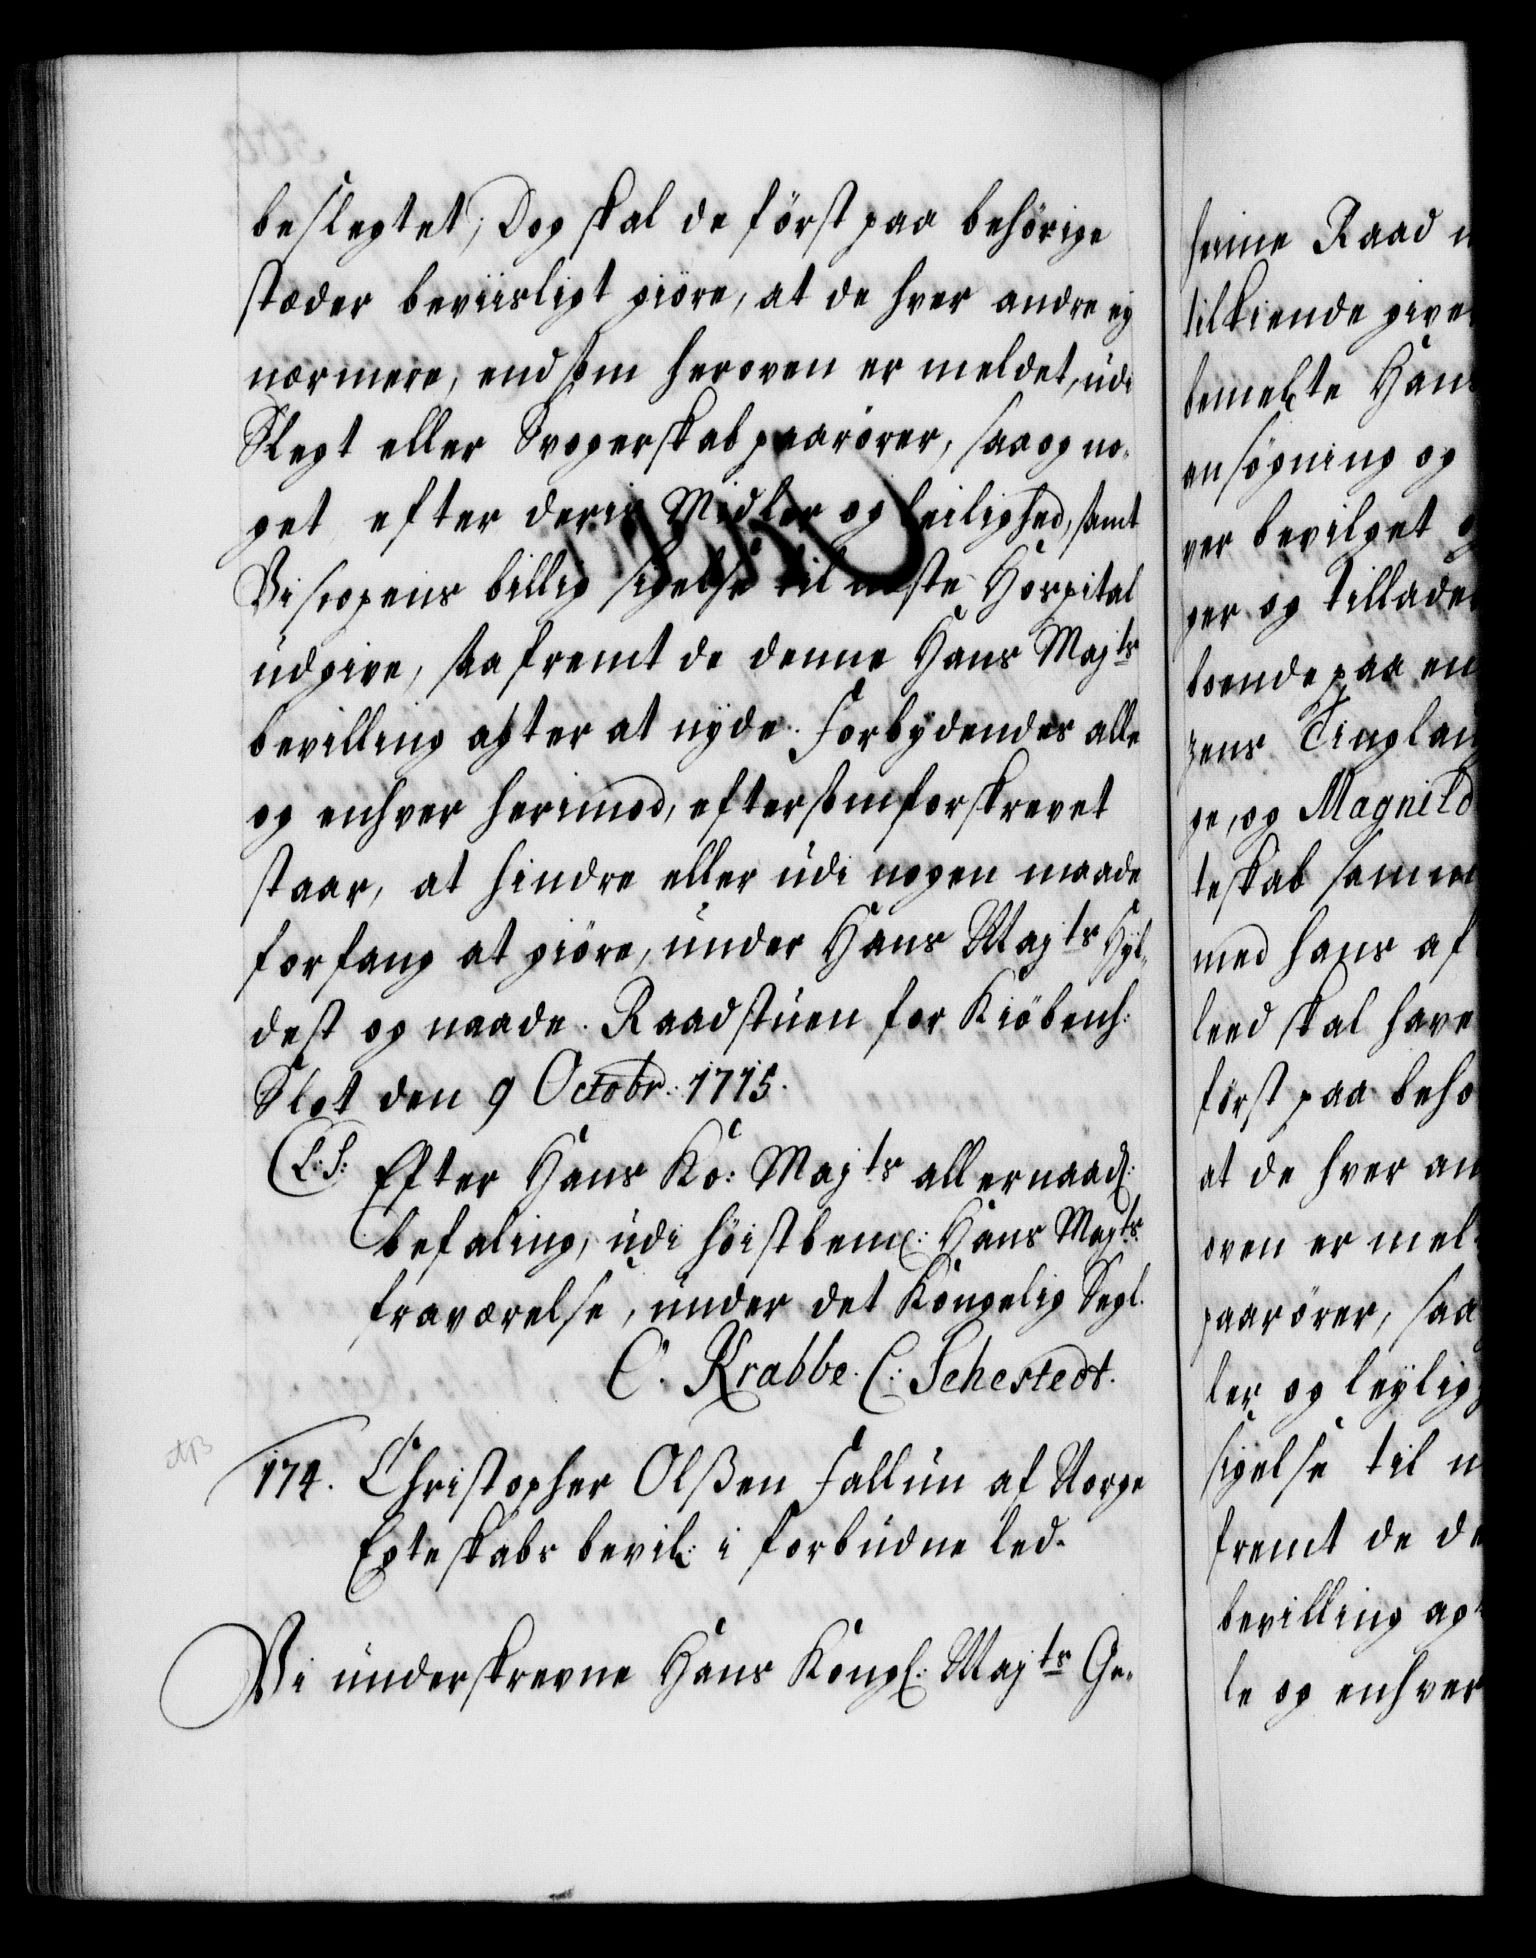 beslegtet, Dog skal de först paa behörige
stæder beviisligt giöre, at de hver andre ej
nærmere, end som heroven er meldet, udi
Slegt eller Svogerskab paarörer, saa og no-
get efter deris Midler og leilighed, samt
Biscopens billig sigelse til neste Hospital
udgive, saafremt de denne Hans Majts
bevilling agter at nyde. Forbydendes alle
og enhver herimod, eftersom forskrevet
staar, at hindre eller udi nogen maade
forfang at giöre, under Hans Majts Hyl-
dest og naade. Raadstuen for Kiöbenh:
Slot den 9 Octobr: 1715.
(L:S: Efter Hans Ko: Majts allernaad:
befaling, udi höistbem: Hans Majts
fraværelse, under det Kongelig Segl.
C. Krabbe. C: Sehestedt.
174. Christopher Olßen Fallun af Norge
Egteskabs bevil: i forbudne led.
Vi underskrevne Hans Kongl: Majts Ge-
heime Raad
tilkiende give
bemelte Hans
ansögning og
ver bevilget
ger og tillade
boende paa en
zens Tinglau
ge, og Magnild
teskab
med hans af
leed skal have
först paa behö
at de hver an
oven er mel
paarörer, saa
ler og leylig
sigelse til n
fremt de de
bevilling ag
le og enhver